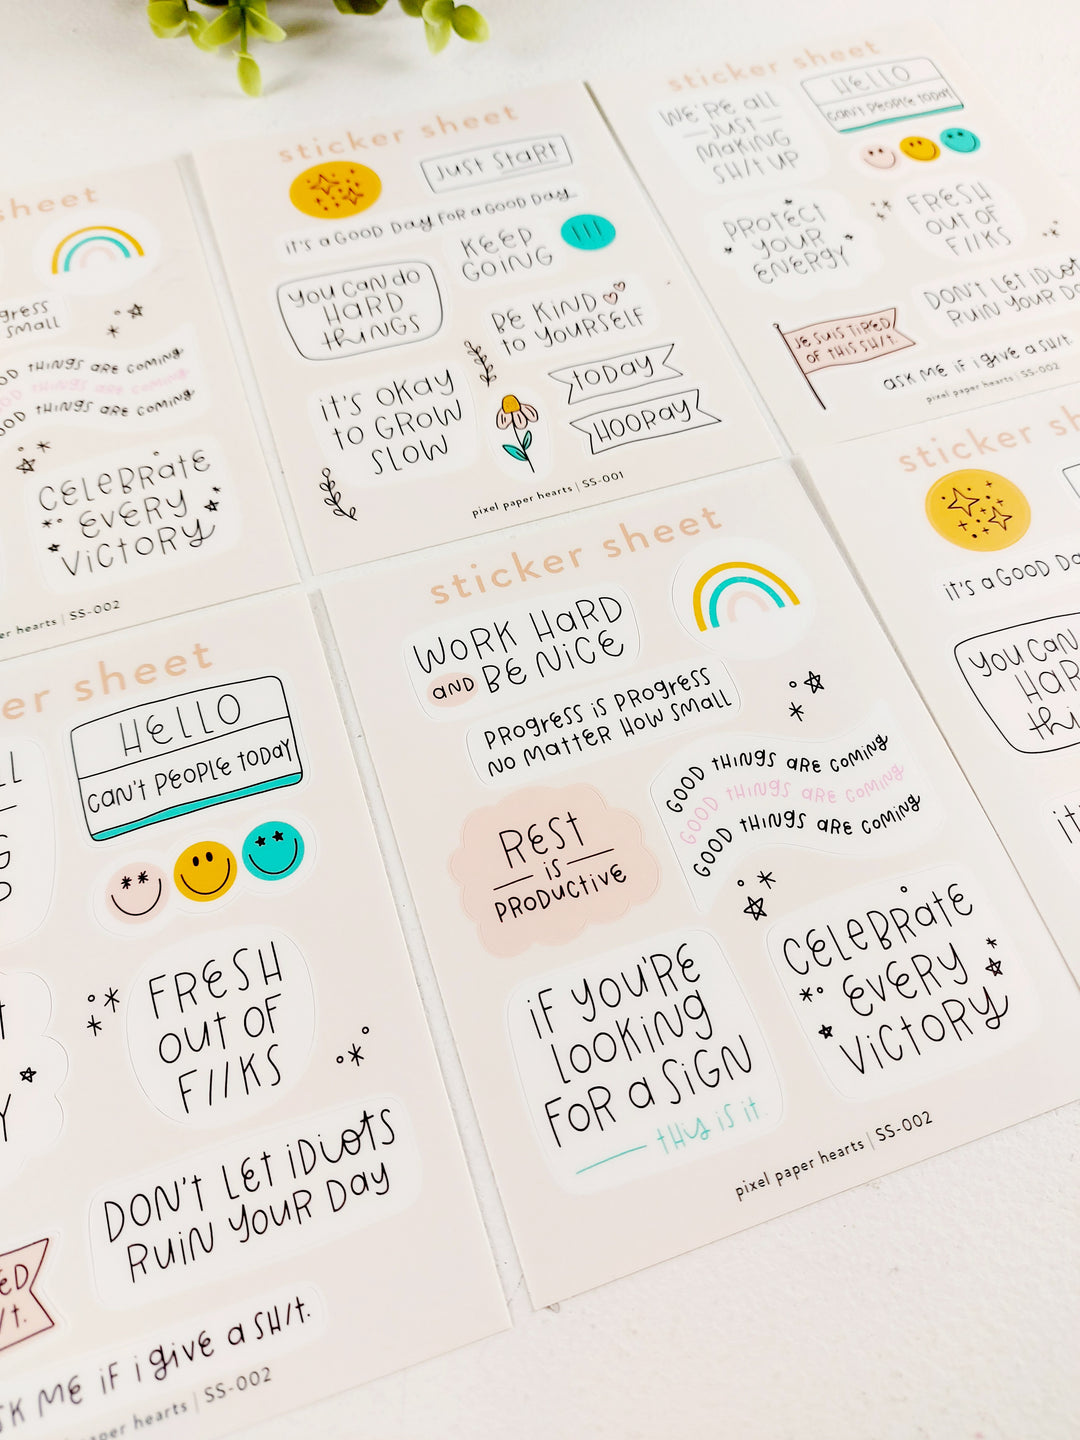 sheet
gress
small
OD tHiNGS aRE COMiNG
tHiNGS aRE COMiNG
OD tHiNGS aRE COMiNG
CELEBRatE
EVERY
ViCtORY
er hearts | SS-002
sticker sheet
JUSt StaRt
it's a GOOD Day FOR a GOOD Day
KEEP
GOING
you can do
HARD
tHiNGS
BE KiND
to YOURSELF
it's OKay
to GROW
SLOW
tODay
HOORay
pixel paper hearts | SS-001
sticker sheet
WE'RE all
JUSt
MaKiNG
SH/t UP
HELLO
can't PEOPLE tODay
PROtECt
yOUR
ENERGY
FRESH
OUt OF
F//KS
DON'T LEt iDiOtS
RUiN YOUR Da
JE SUiS tiRED
OF tHiS SH/t.
aSK ME iF i GiVE a SH/t.
pixel paper hearts | SS-002
er sheet
LL
HELLO
can't PEOPLE tODay
FRESH
OUt OF
F//KS
DON't LEt iDiOtS
RUiN YOUR Day
ED
/t.
SK ME iF i GiVE a SH/t.
paper hearts | SS-002
sticker sheet
WORK HaRD
aND BE NiCE
PROGRESS iS PROGRESS
NO MattER HOW SMall
GOOD tHiNGS aRE COMiNG
GOOD tHiNGS aRE COMiNG
GOOD tHiNGS aRE COMiNG
RESt
iS
PRODUCtiVE
iF YOU'RE
LOOKiNG
FOR a SiGN
tHiS iS it.
CELEBRatE
EVERY
ViCtORY
pixel paper hearts | SS-002
sticker sh
it's a GOOD Da
you can
HaR
tHi
it